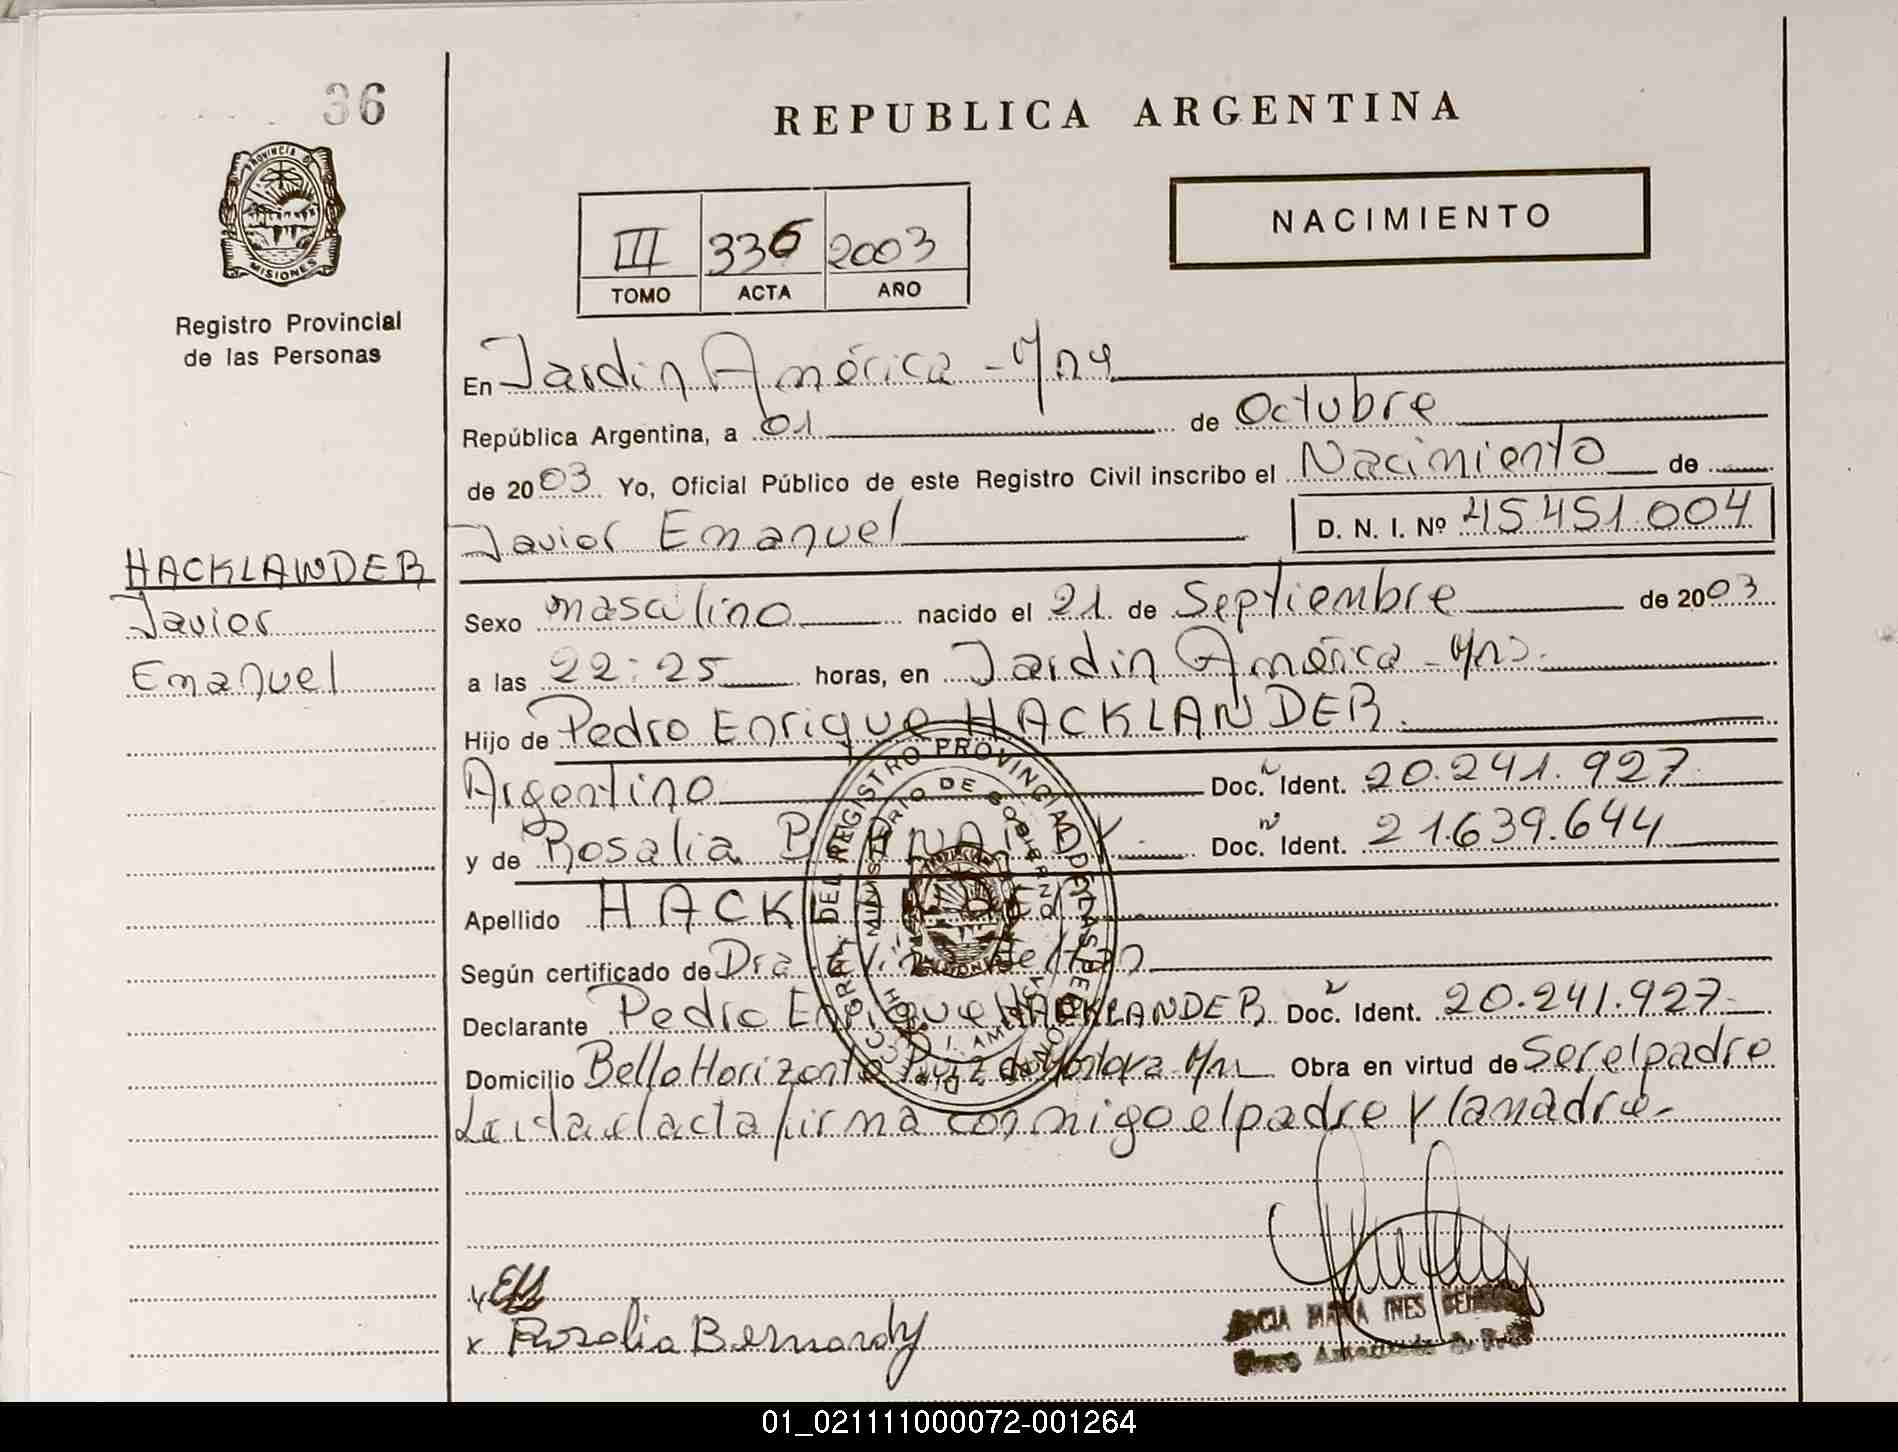 36
REPUBLICA ARGENTINA
PROVINCIA DE
MISIONES
Registro Provincial
de las Personas
III 336 2003
TOMO ACTA AÑO
NACIMIENTO
En Jardin América - Mns
República Argentina, a 01 de Octubre
de 2003 Yo, Oficial Público de este Registro Civil inscribo el Nacimiento de
Javier Emanuel D. N. I. Nº 45.451.004
HACKLANDER
Javier
Emanuel
Sexo masculino nacido el 21 de Septiembre de 2003
a las 22:25 horas, en Jardin América - Mns.
Hijo de Pedro Enrique HACKLANDER
Argentino Doc. Ident. 20.241.927
y de Rosalia Doc. Ident. 21.639.644
Apellido HACKLANDER
Según certificado de Dra
Declarante Pedro Enrique HACKLANDER Doc. Ident. 20.241.927
Domicilio Bello Horizonte Ruiz de Montoya Mns Obra en virtud de Ser el padre
Leida el acta firma conmigo el padre y la madre
DEL REGISTRO PROVINCIAL DE LAS PERSONAS
MINISTERIO DE GOBIERNO
J. AMERICA
x Rosalia Bernardy
MARIA INES
01_021111000072-001264